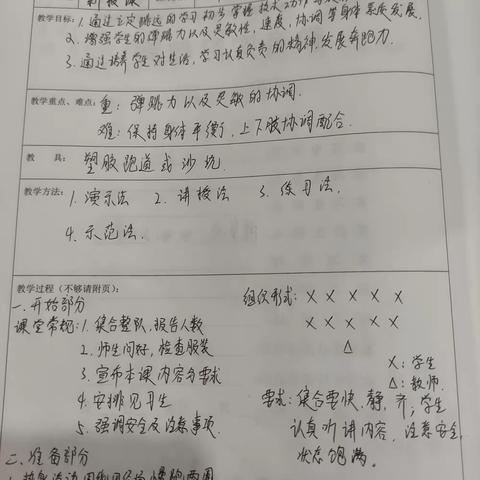 新授课
教学目标:1.通过立定跳远的学习初步掌握技术动作
2.增强学生的弹跳力以及灵敏性,速度,协调等身体素质发展.
3.通过培养学生对生活,学习认真负责的精神,发展奔跑力.
教学重点、难点:重:弹跳力以及灵敏的协调.
难:保持身体平衡,上下肢协调配合.
教 具: 塑胶跑道或沙坑.
教学方法:1.演示法 2.讲授法 3.练习法.
4.示范法.
教学过程(不够请附页):
一.开始部分 组织形式: X X X X X
课堂常规:1.集合整队,报告人数 X X X X X
2.师生问好,检查服装 Δ
X:学生
3.宣布本课内容与要求 Δ:教师.
4.安排见习生 要求:集合要快、静、齐;学生
5.强调安全及注意事项. 认真听讲内容,注意安全.
二.准备部分 状态饱满。
慢跑两圈